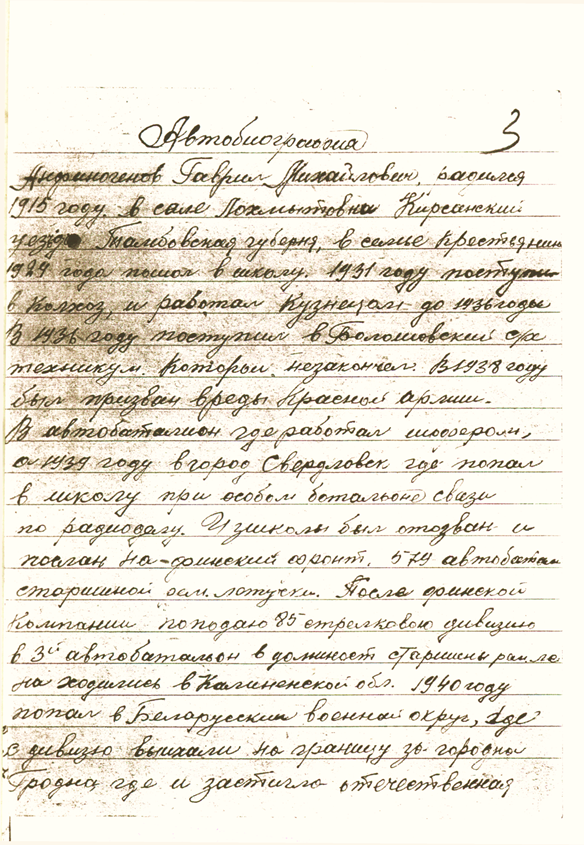 3
Автобиография
Анфиногенов Гаврил Михайлович родился
1915 году в селе Лохмытовка Кирсанский
уезд Тамбовская губерня, в семье крестьянина
1924 года пошол в школу. 1931 году поступил
в Колхоз, и работал Кузнецом до 1936 годы
В 1936 году поступил в Боломовский с/х
техникум. Которой незакончел. В 1938 году
был призван вреды Красной армии.
В автобаталион где работал шофером,
а 1939 году в город Свердловск где попал
в школу при особом батальоне связи
по радиоделу. Изшколы был отозван и
послан на-финский фронт. 579 автобатал
старшиной рем.летучки. После финской
Компании поподаю 85 стрелковою дивизию
в 3й автобатальон в должност старшины рем.ле
на ходились в Калиненской обл. 1940 году
попал в Беларусский военной округ, где
с дивизю выихали на границу за городна
Гродна где и застигла отечественная